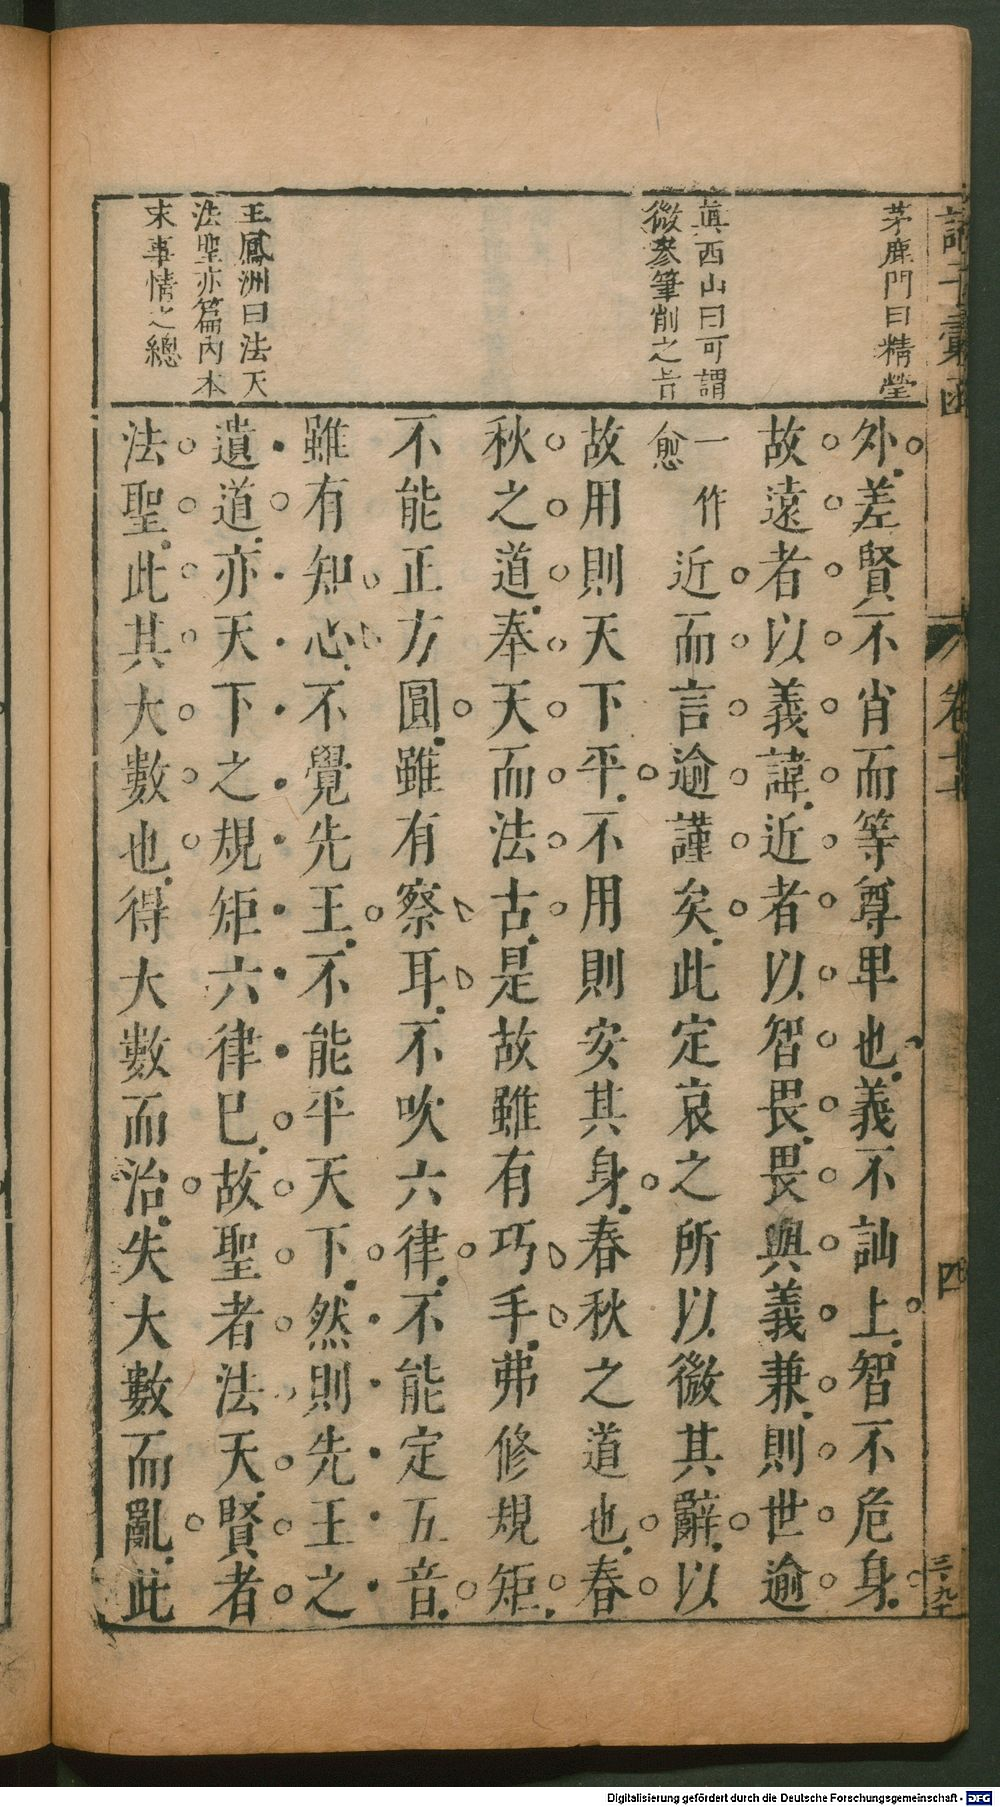 茅鹿門曰精瑩
眞西山曰可謂
微參筆削之旨
王鳳洲曰法天
法聖亦篇內本
末事情之總
外差賢不肖而等尊卑也義不訕上智不危身
故遠者以義諱近者以智畏畏與義兼則世逾
一作愈近而言逾謹矣此定哀之所以微其辭以
故用則天下平不用則安其身春秋之道也春
秋之道奉天而法古是故雖有巧手弗修規矩
不能正方圓雖有察耳不吹六律不能定五音
雖有知心不覺先王不能平天下然則先王之
遺道亦天下之規矩六律已故聖者法天賢者
法聖此其大數也得大數而治失大數而亂此
卷十七
四
三九十
Digitalisierung gefördert durch die Deutsche Forschungsgemeinschaft - DFG